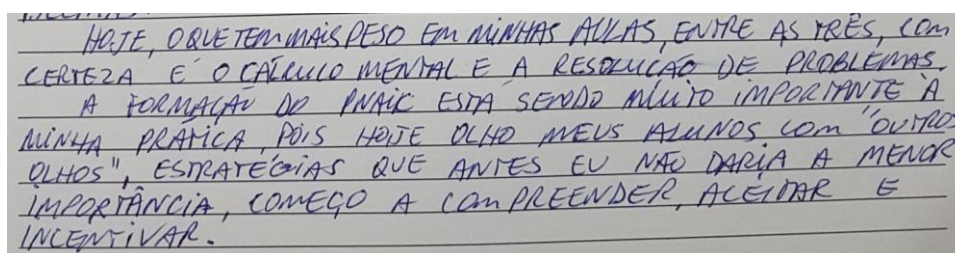 HOJE, O QUE TEM MAIS PESO EM MINHAS AULAS, ENTRE AS TRÊS, COM
CERTEZA É O CÁLCULO MENTAL E A RESOLUÇÃO DE PROBLEMAS.
A FORMAÇÃO DO PNAIC ESTÁ SENDO MUITO IMPORTANTE À
MINHA PRÁTICA, POIS HOJE OLHO MEUS ALUNOS COM "OUTROS
OLHOS", ESTRATÉGIAS QUE ANTES EU NÃO DARIA A MENOR
IMPORTÂNCIA, COMEÇO A COMPREENDER, ACEITAR E
INCENTIVAR.